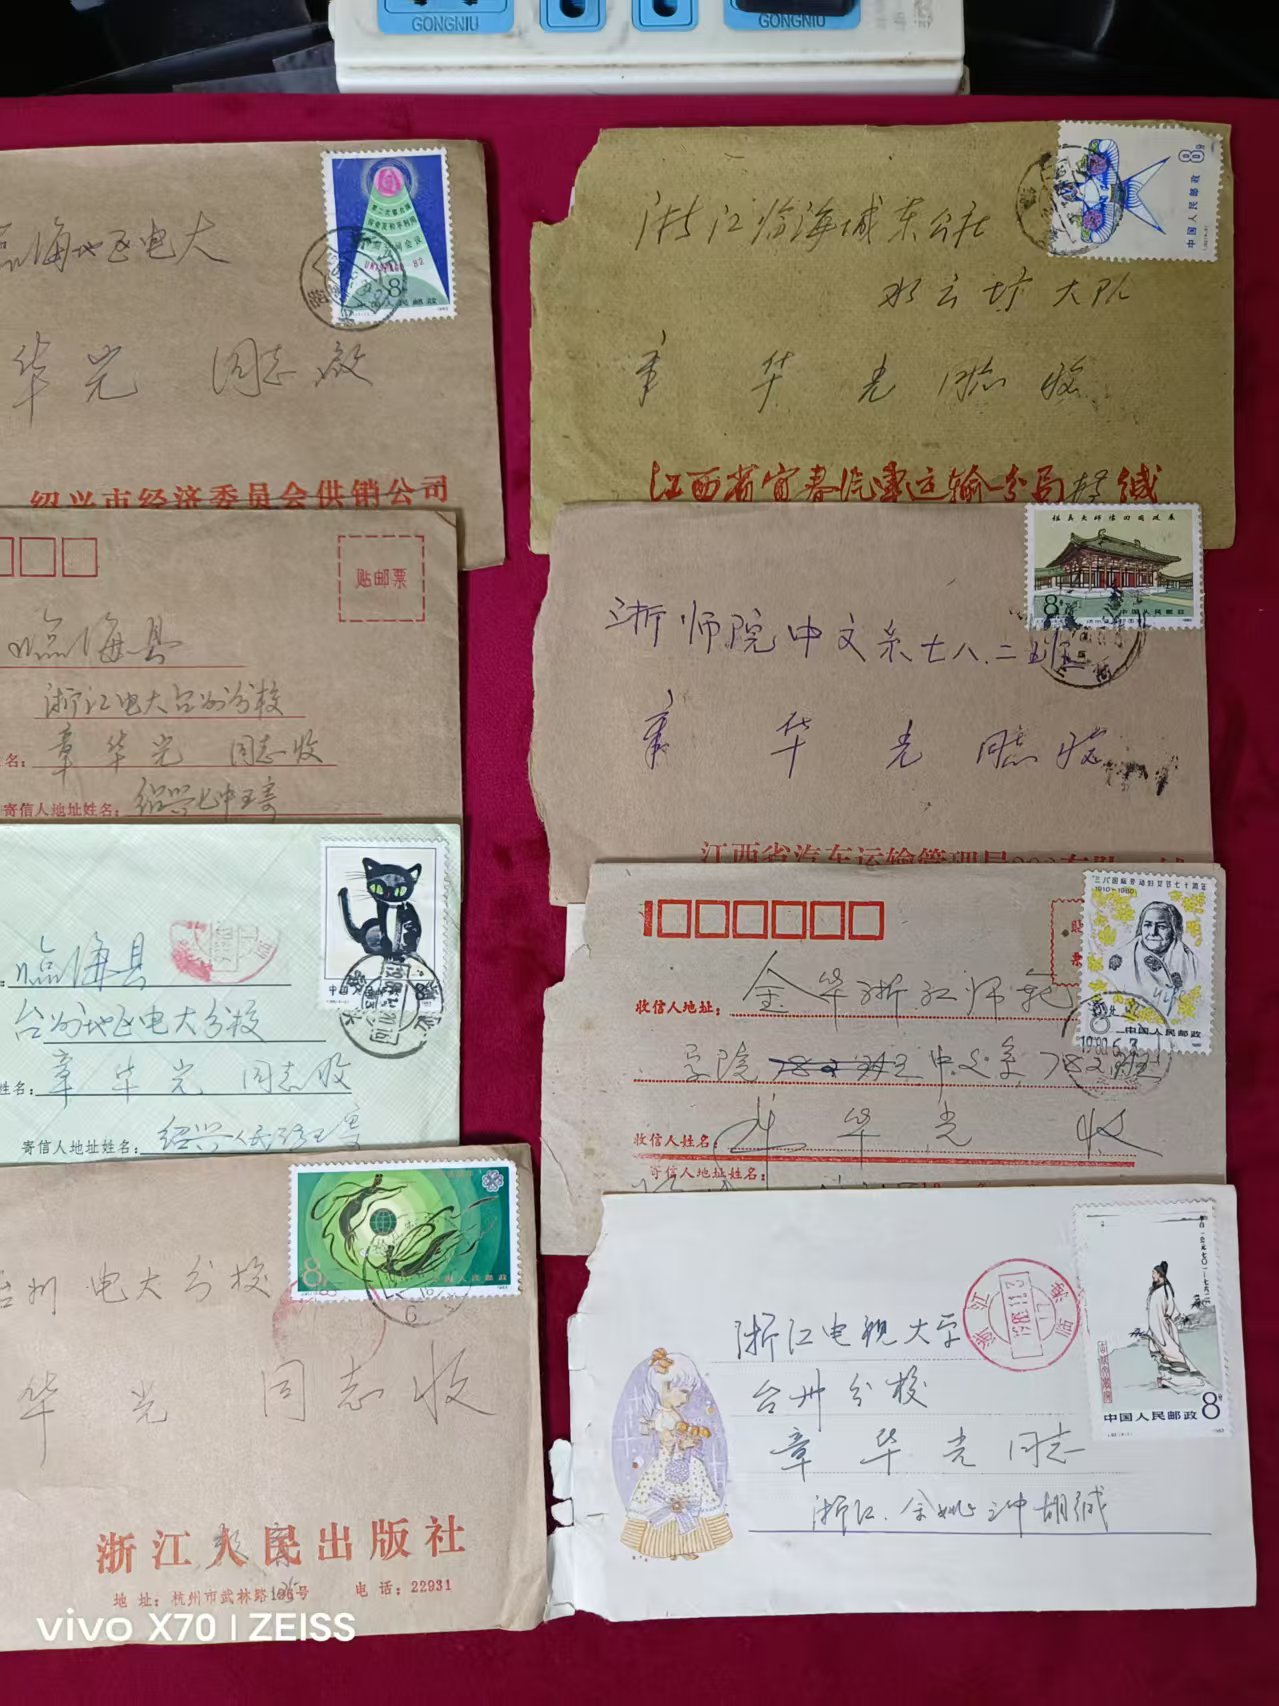 GONGNIU
GONGNIU
临海地区电大
华光 同志啟
绍兴市经济委员会供销公司
UNISPACE 82
8
中国人民邮政
贴邮票
临海县
浙江电大台州分校
章华光 同志收
寄信人地址姓名:
绍兴七中王寄
临海县
台州地区电大分校
姓名:
章华光 同志收
寄信人地址姓名:
绍兴人民路王寄
台州电大分校
华光 同志收
8
中国人民邮政
浙江人民出版社
地址:杭州市武林路196号
电话:22931
浙江临海城东公社
水云坊大队
章华光同志收
江西省宜春汽車运输分局 缄
8分
中国人民邮政
浙师院中文系七八.二班
章华光同志收
鉴真大师像回国巡展
8分
中国人民邮政
江西省汽车运输管理局
三八国际劳动妇女节七十周年
1910-1980
8
中国人民邮政
收信人地址:
金华浙江师范
学院 中文系782班
1980.6.3
收信人姓名:
章华光 收
寄信人地址姓名:
浙江电视大学
台州分校
章华光同志
浙江.余姚三中胡缄
浙江
临海
1983.11.2
中国人民邮政
8分
vivo X70 | ZEISS